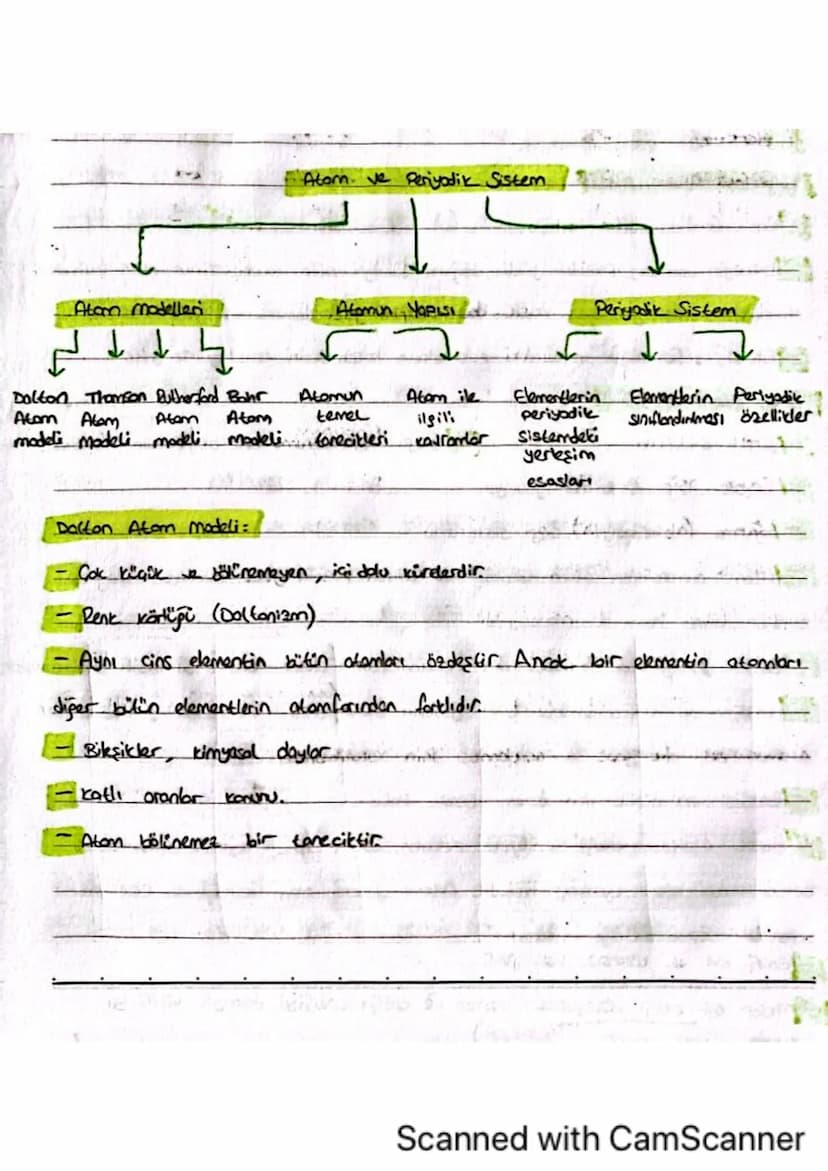 Atom ve Periyodik Sistem
Atom Modelleri Atomun Yapısı Periyodik Sistem
Dalton Thomson Rutherford Bohr Atomun Atom ile Elementlerin Elementlerin Periyodik
Atom Atom Atom Atom temel ilgili periyodik sınıflandırılması özellikler
modeli modeli modeli modeli tanecikleri kavramlar sistemdeki
yerleşim
esasları
Dalton Atom Modeli:
- Çok küçük ve bölünemeyen, içi dolu kürelerdir.
- Renk körlüğü (Daltonizm)
- Aynı cins elementin bütün atomları özdeştir. Ancak bir elementin atomları
diğer bütün elementlerin atomlarından farklıdır.
- Bileşikler, kimyasal olaylar
- Katlı oranlar kanunu.
- Atom bölünemez bir taneciktir.
Scanned with CamScanner